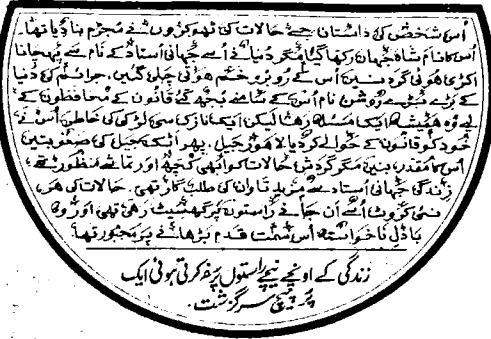 اُس شخص کی داستان جسے حالات کی ٹھوکروں نے مجرم بنا دیا تھا۔
اُس کا نام شاہ جہان رکھا گیا مگر دُنیا نے اُسے جہانی اُستاد کے نام سے پہچانا
اکڑی ہوئی گردنیں اُس کے رُوبرو خم ہوتی چلی گئیں۔ جرائم کی دُنیا
کے بڑے بڑے روشن نام اُس کے سامنے بُجھ گئے قانون کے محافظوں کے
لیے وُہ ہمیشہ ایک مسئلہ رہا لیکن ایک نازک سی لڑکی کی خاطر اُس نے
خود کو قانون کے حوالے کر دیا لاہور جیل، پھر اٹک جیل کی صعوبتیں
اُس کا مقدر بنیں مگر گردشِ حالات کو ابھی کچھ اور تماشے منظور تھے،
زندگی جہانی اُستاد سے مزید تاوان کی طلب گار تھی۔ حالات کی ہر
نئی کروٹ اُسے اَن جانے راستوں پر گھسیٹ رہی تھی اور وُہ
بادلِ ناخواستہ اُس سمت قدم بڑھانے پر مجبور تھا۔
زندگی کے اونچے نیچے راستوں پر سفر کرتی ہوئی ایک
پُر پیچ سرگزشت۔